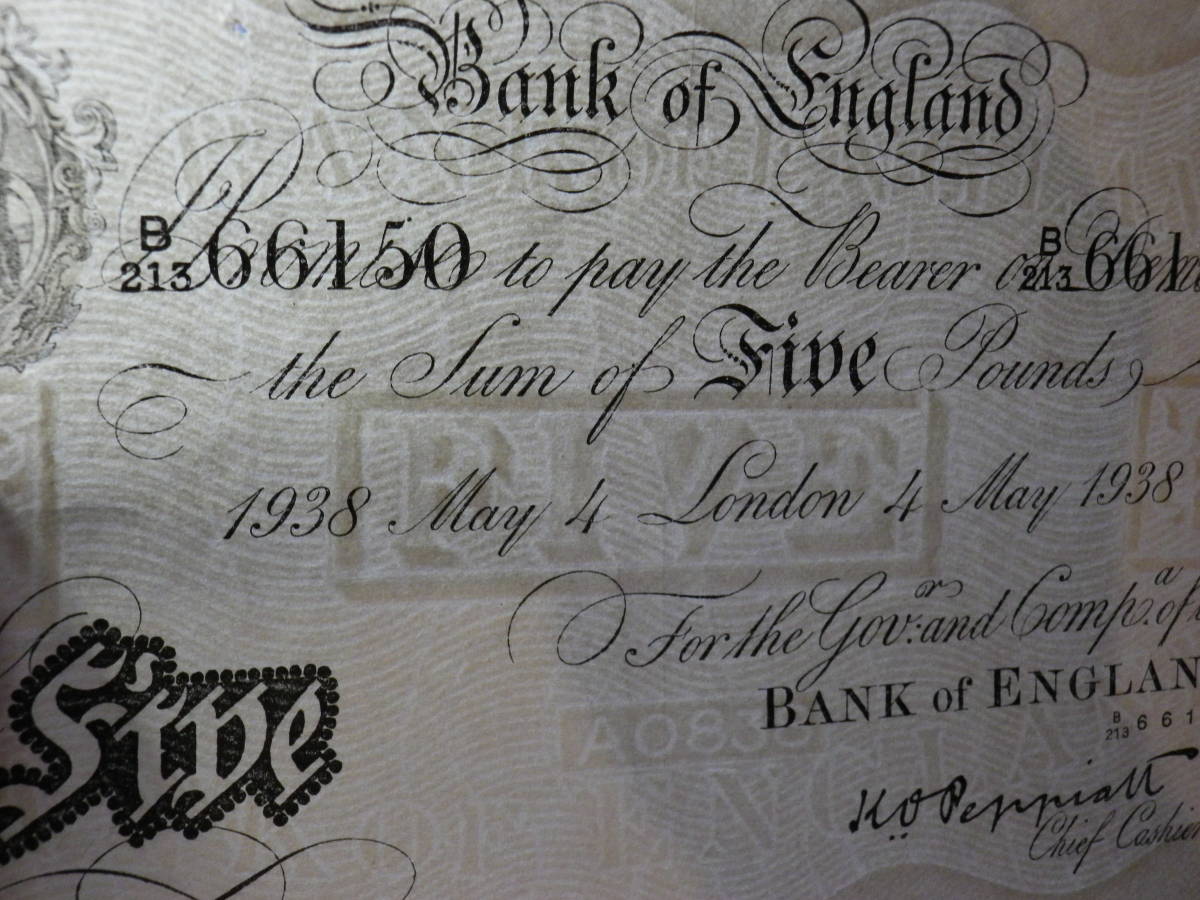 Bank of England
B 213 66150 to pay the Bearer on B 213 661
the Sum of Five Pounds
FIVE
1938 May 4 London 4 May 1938
For the Gov:or and Comp:a of
BANK of ENGLAN
B 213 6 6 1
Five
A083
K O Peppiatt
Chief Cashier